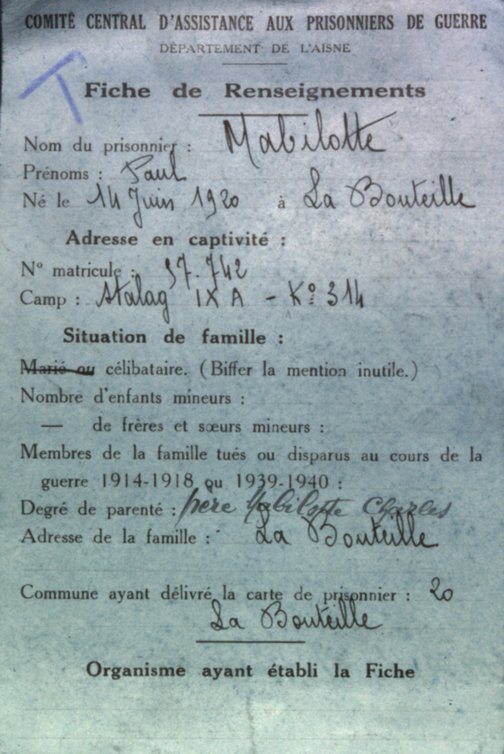 COMITÉ CENTRAL D'ASSISTANCE AUX PRISONNIERS DE GUERRE
DÉPARTEMENT DE L'AISNE
T
Fiche de Renseignements
Nom du prisonnier : Mabilotte
Prénoms : Paul
Né le 14 Juin 1920 à La Bouteille
Adresse en captivité :
N° matricule : 37.742
Camp : Stalag IX A - K° 314
Situation de famille :
Marié ou célibataire. (Biffer la mention inutile.)
Nombre d'enfants mineurs :
— de frères et sœurs mineurs :
Membres de la famille tués ou disparus au cours de la
guerre 1914-1918 ou 1939-1940 :
Degré de parenté : père Mabilotte Charles
Adresse de la famille : La Bouteille
Commune ayant délivré la carte de prisonnier : 20
La Bouteille
Organisme ayant établi la Fiche